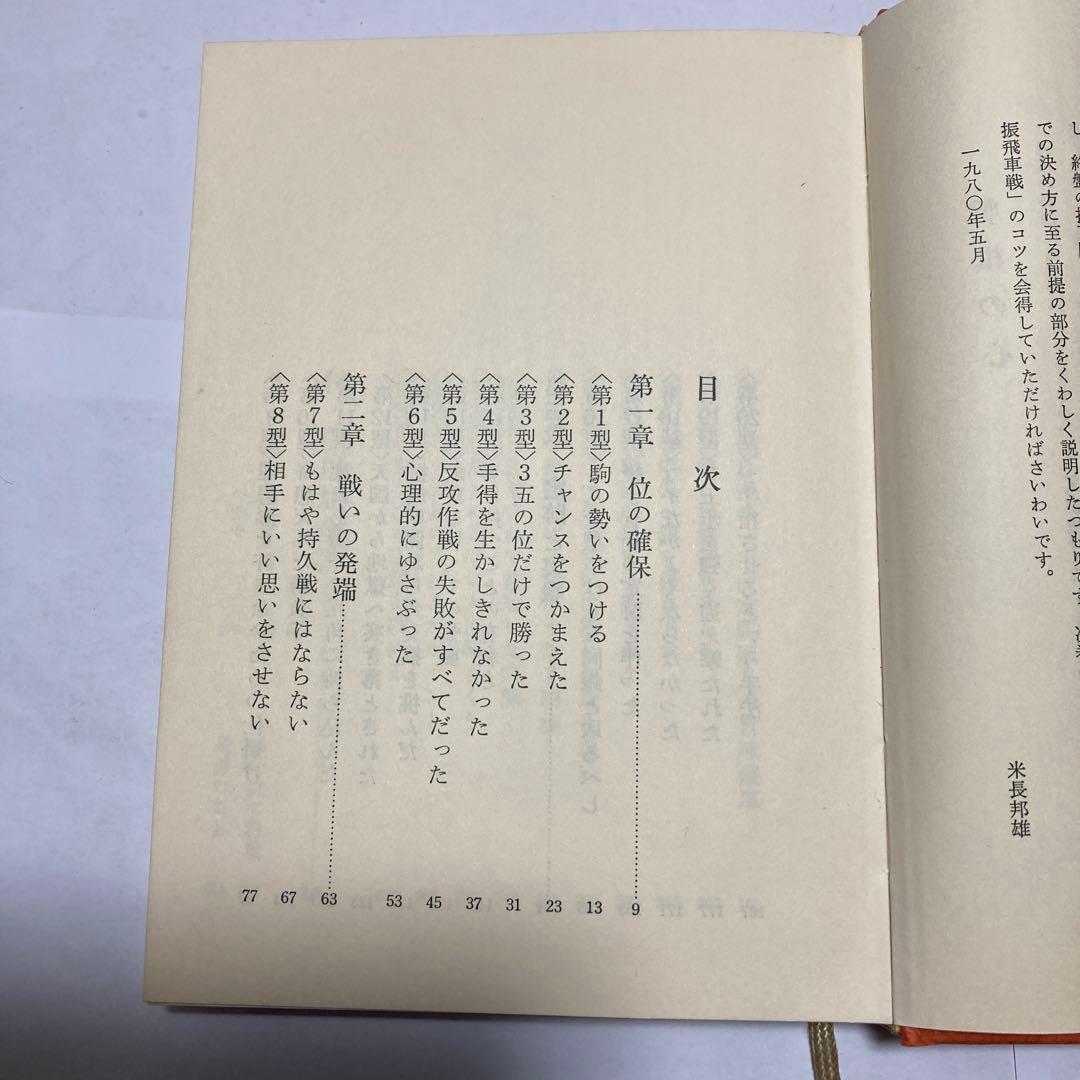 での決め方に至る前提の部分をくわしく説明したつもりです。
振飛車戦」のコツを会得していただければさいわいです。
一九八〇年五月
米長邦雄
目次
第一章 位の確保……9
〈第1型〉駒の勢いをつける 13
〈第2型〉チャンスをつかまえた 23
〈第3型〉3五の位だけで勝った 31
〈第4型〉手得を生かしきれなかった 37
〈第5型〉反攻作戦の失敗がすべてだった 45
〈第6型〉心理的にゆさぶった 53
第二章 戦いの発端……63
〈第7型〉もはや持久戦にはならない 67
〈第8型〉相手にいい思いをさせない 77